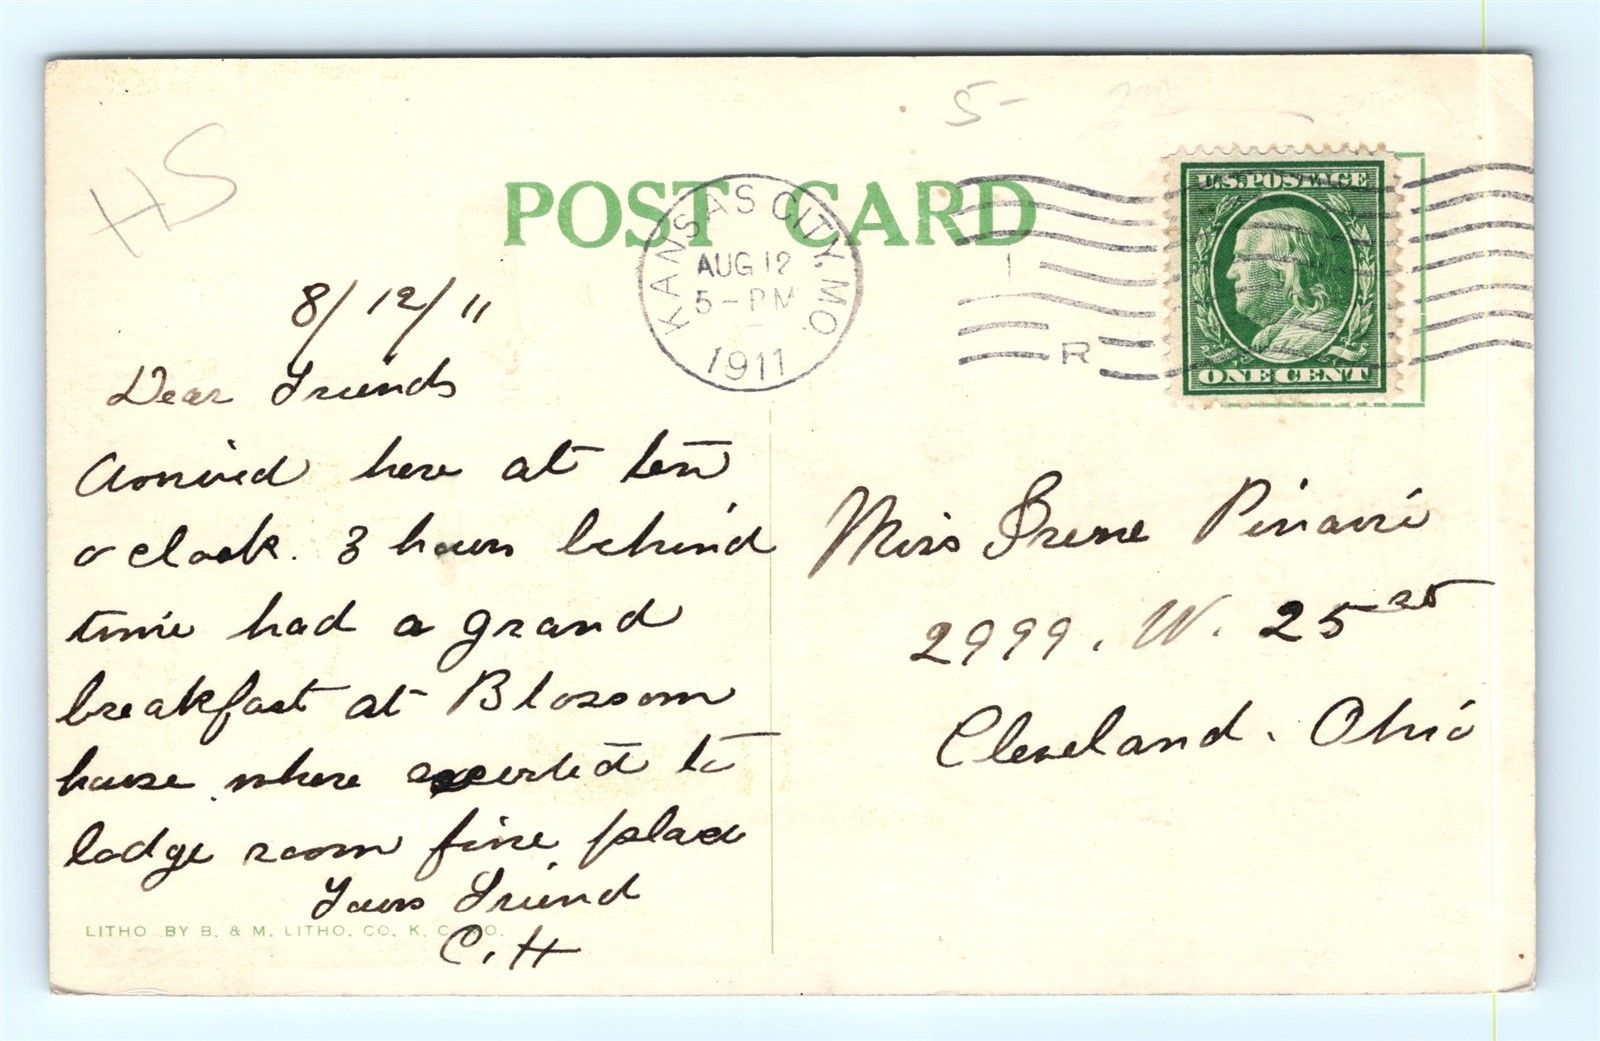 5-
HS
POST CARD
KANSAS CITY, MO.
AUG 12
5-PM
1911
R
U.S. POSTAGE
ONE CENT
8/12/11
Dear Friends
Arrived here at ten
o clock. 3 hours behind
time had a grand
breakfast at Blossom
house where to
lodge room fine place
Yours Friend
C. H
LITHO BY B. & M. LITHO. CO. K. C. MO.
Miss Irene
2999. W. 25
Cleveland. Ohio